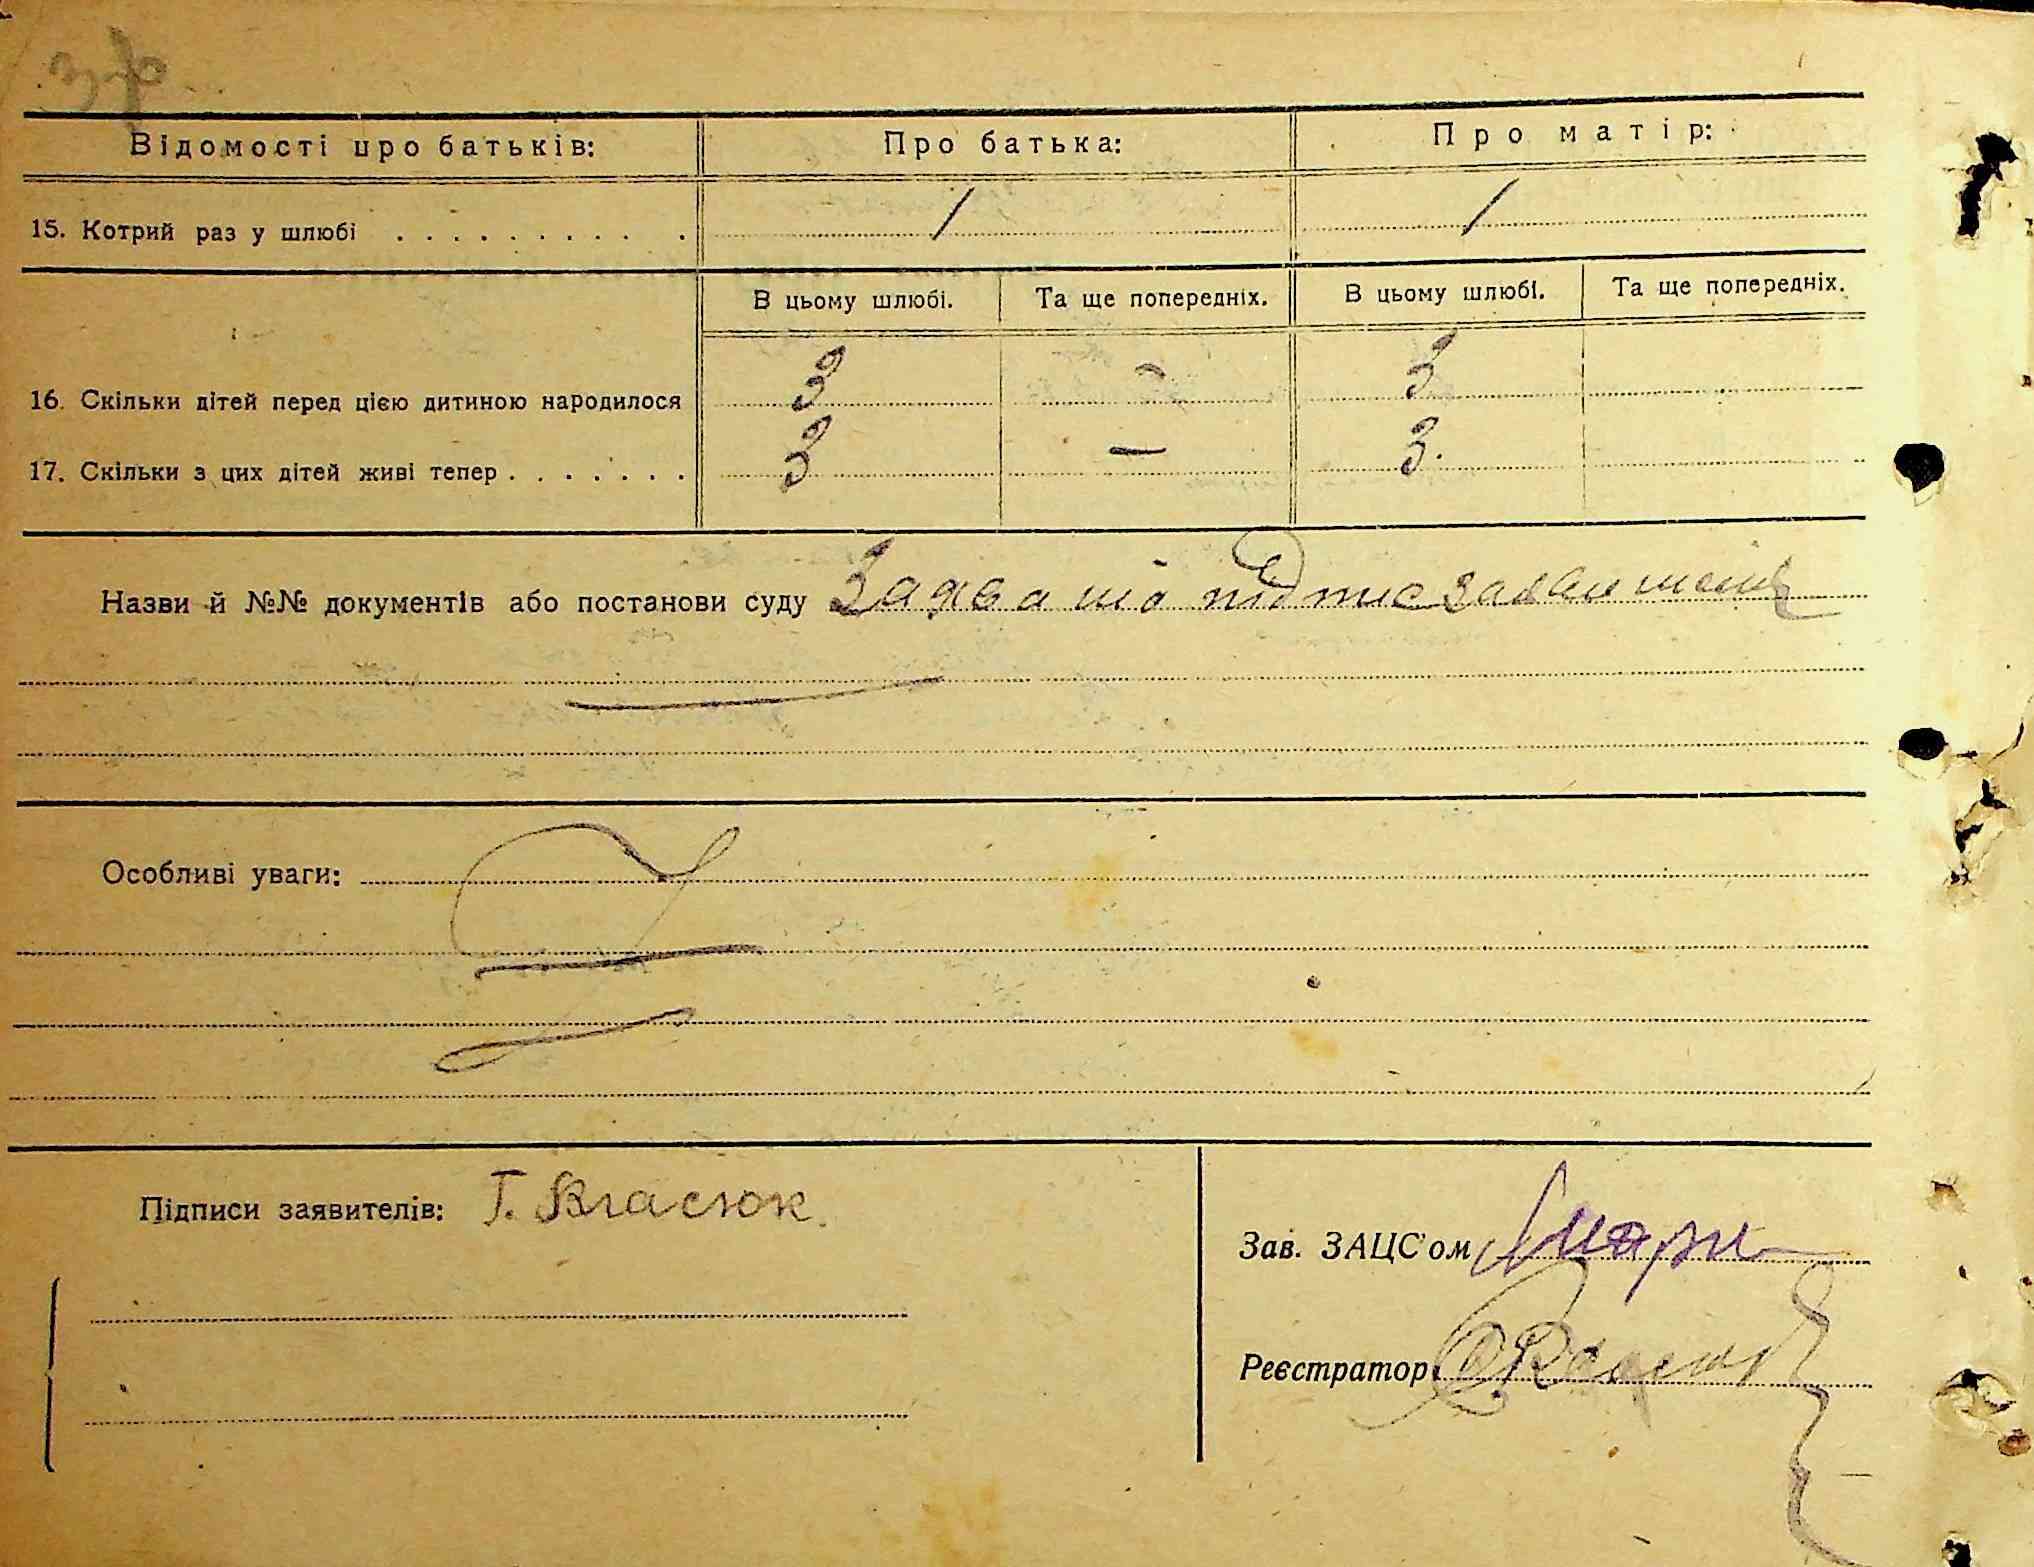 Відомості про батьків: Про батька: Про матір:
15. Котрий раз у шлюбі . . . . . . . . . . 1 1
В цьому шлюбі. Та ще попередніх. В цьому шлюбі. Та ще попередніх.
16. Скільки дітей перед цією дитиною народилося 3 - 3
17. Скільки з цих дітей живі тепер . . . . . . . 3 — 3.
Назви й №№ документів або постанови суду Заява та підпис
Особливі уваги:
Підписи заявителів: Г. Власюк.
Зав. ЗАЦС'ом
Реєстратор